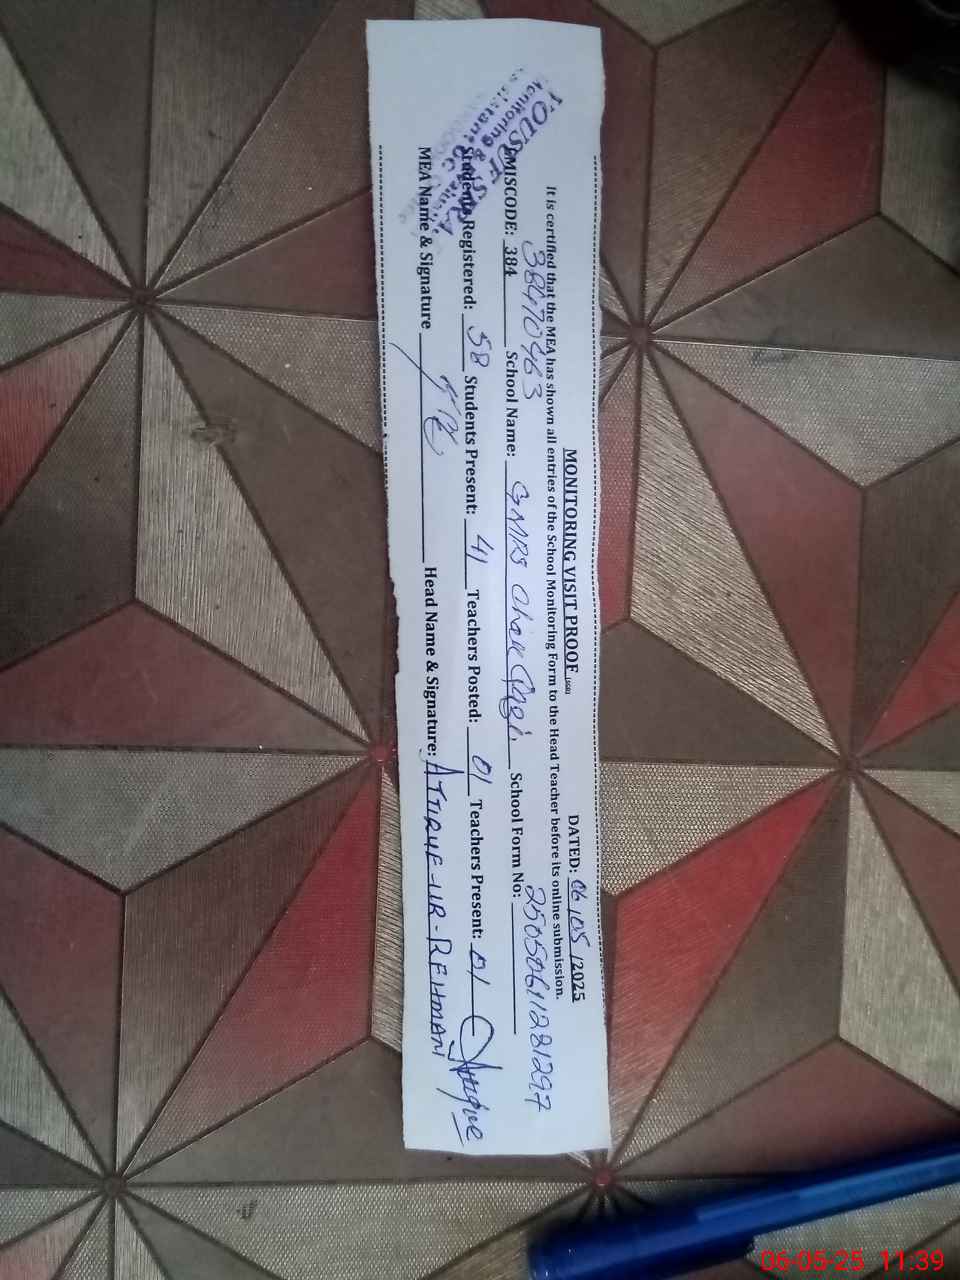 MONITORING VISIT PROOF DATED: 06/05/2025
It is certified that the MEA has shown all entries of the School Monitoring Form to the Head Teacher before its online submission.
38470463 25050611281297
EMISCODE: 384 School Name: GMRS Chak School Form No:
Students Registered: 58 Students Present: 41 Teachers Posted: 01 Teachers Present: 01
MEA Name & Signature Head Name & Signature: ATTIQUE-UR-REHMAN Attique
Monitoring &
06-05-25 11:39